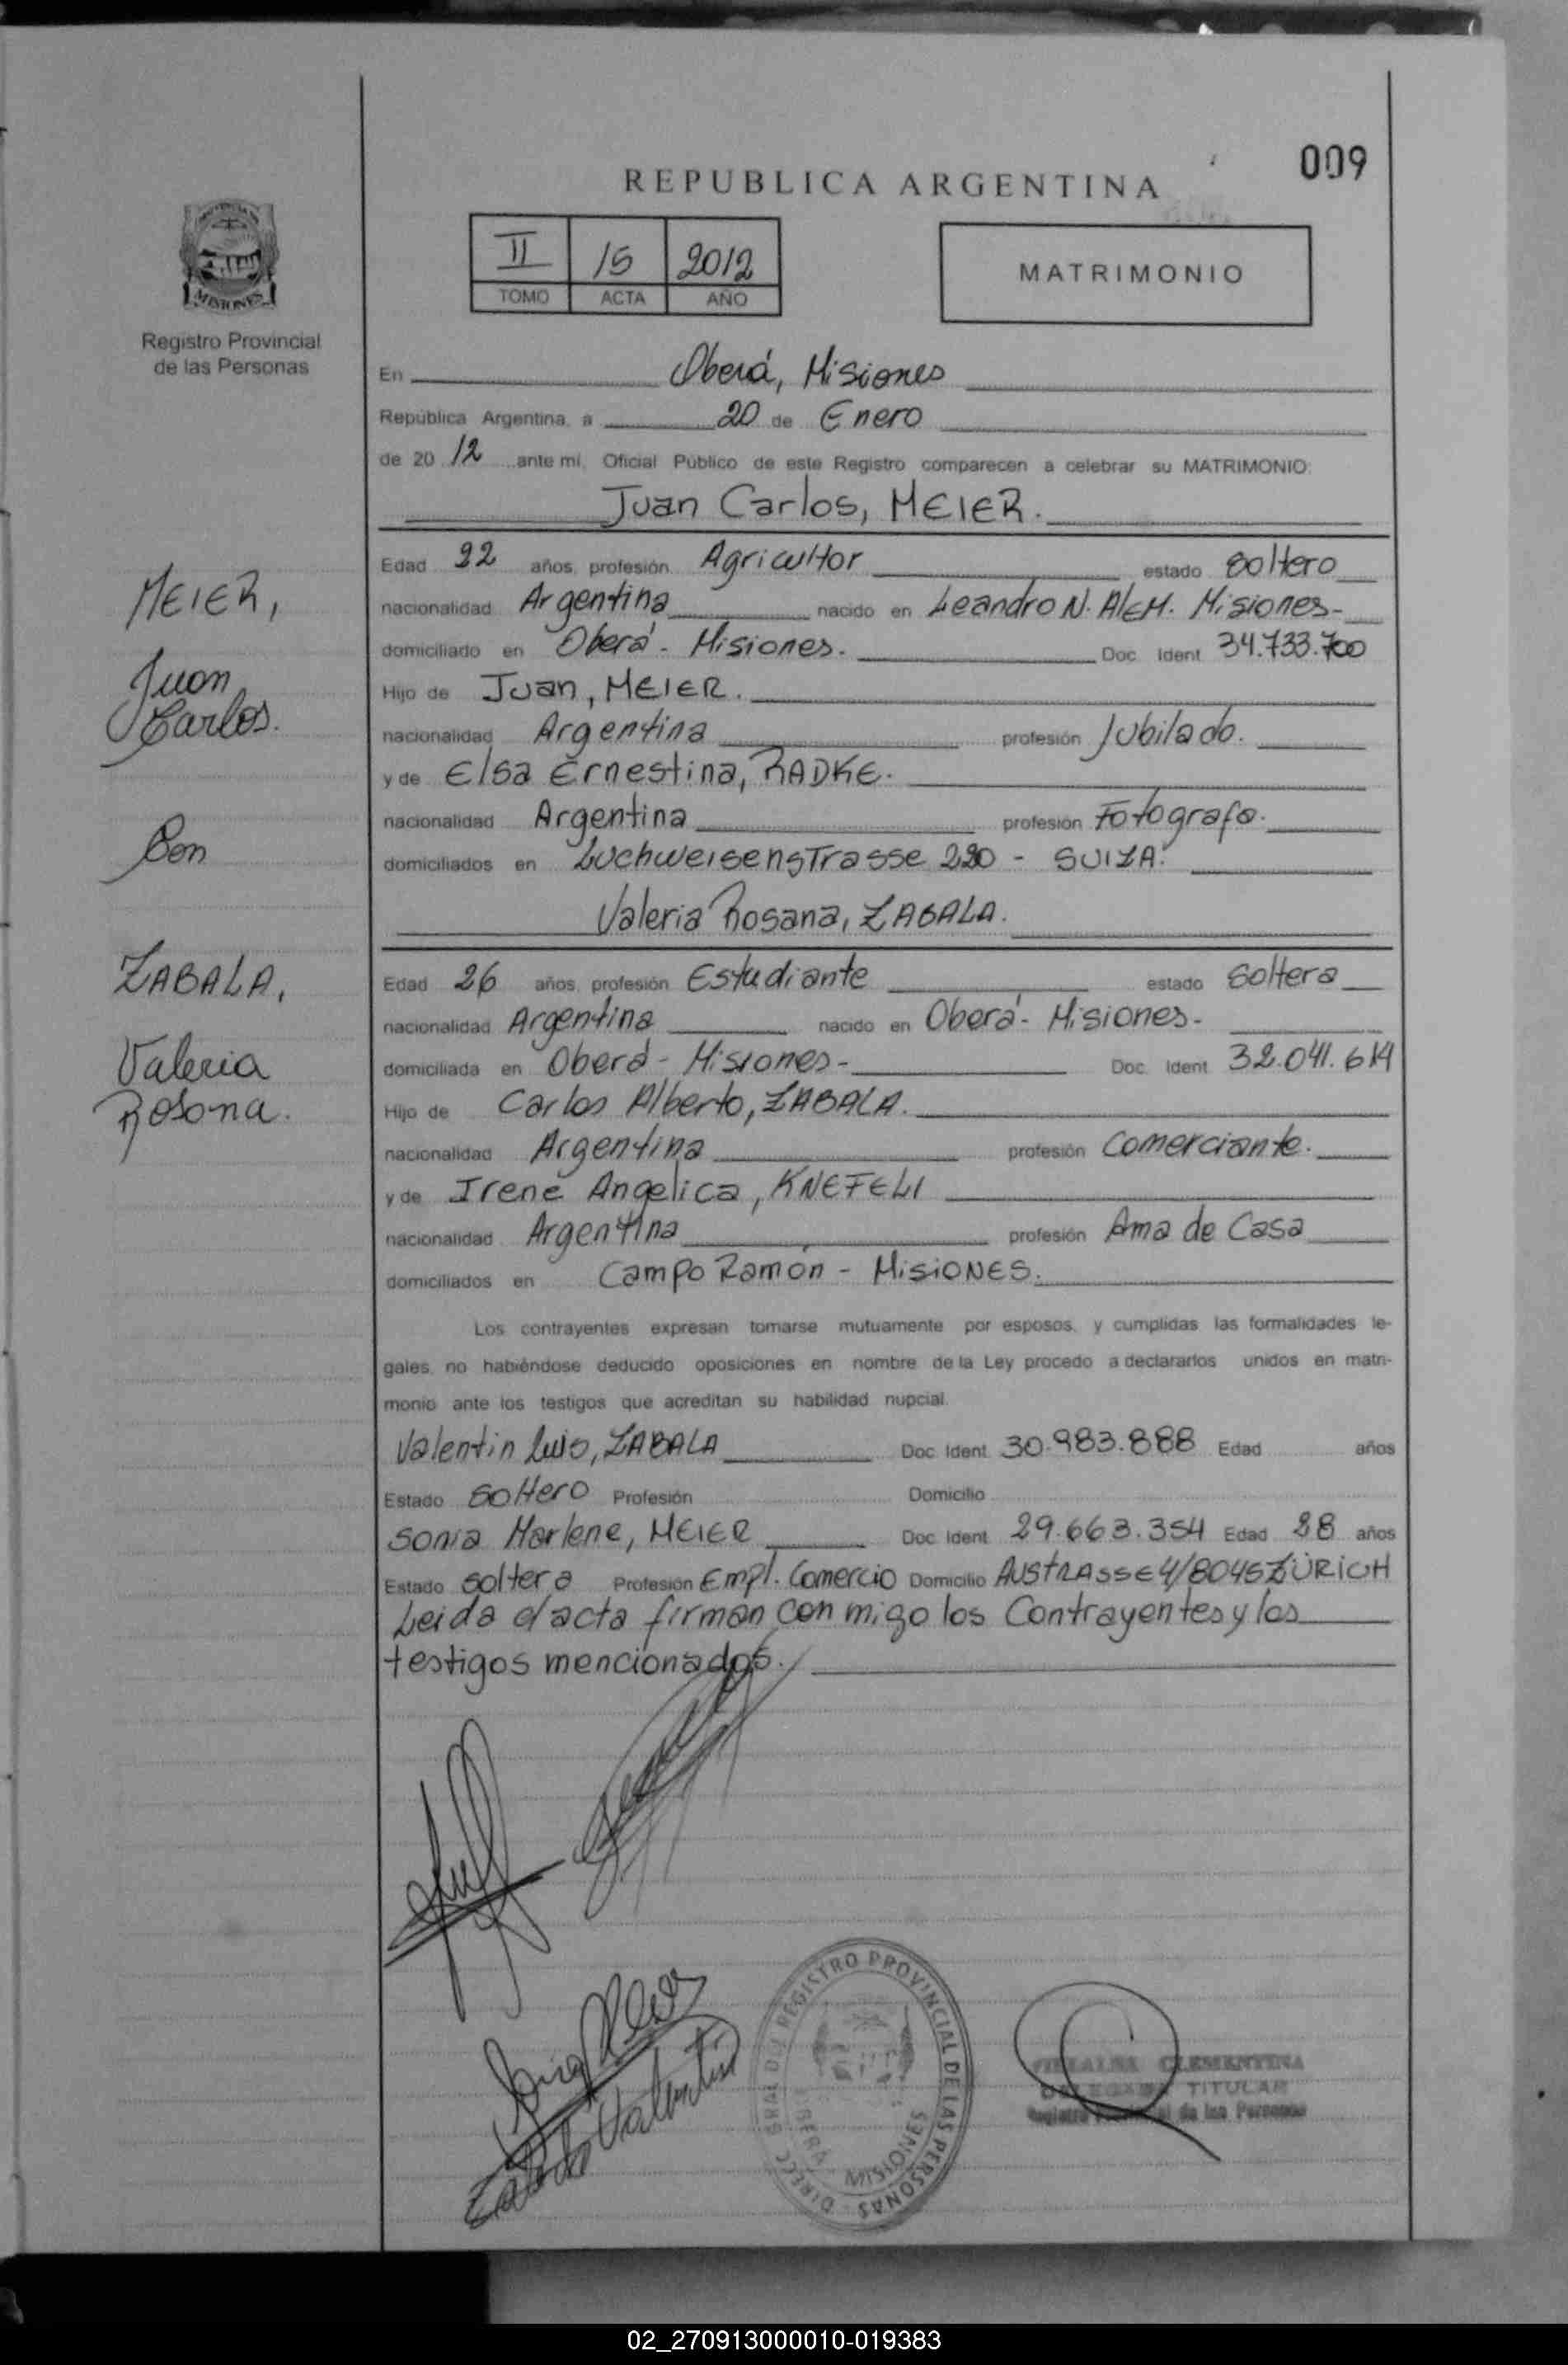 009
REPUBLICA ARGENTINA
II 15 2012
TOMO ACTA AÑO
MATRIMONIO
MISIONES
Registro Provincial
de las Personas
En Oberá, Misiones
República Argentina, a 20 de Enero
de 20 12 ante mí, Oficial Público de este Registro comparecen a celebrar su MATRIMONIO:
Juan Carlos, MEIER.
Edad 22 años, profesión Agricultor estado Soltero
nacionalidad Argentina nacido en Leandro N. AlEM. Misiones-
domiciliado en Oberá - Misiones. Doc. Ident. 34.733.700
Hijo de Juan, MEIER.
nacionalidad Argentina profesión Jubilado.
y de Elsa Ernestina, RADKE.
nacionalidad Argentina profesión Fotografa.
domiciliados en Luchweisenstrasse 220 - SUIZA.
Valeria Rosana, ZABALA.
Edad 26 años, profesión Estudiante estado Soltera
nacionalidad Argentina nacido en Oberá - Misiones-
domiciliada en Oberá - Misiones- Doc. Ident. 32.041.614
Hijo de Carlos Alberto, ZABALA.
nacionalidad Argentina profesión Comerciante.
y de Irene Angelica, KNEFELI
nacionalidad Argentina profesión Ama de Casa
domiciliados en Campo Ramón - MisiONES.
Los contrayentes expresan tomarse mutuamente por esposos, y cumplidas las formalidades le-
gales, no habiéndose deducido oposiciones en nombre de la Ley procedo a declararlos unidos en matri-
monio ante los testigos que acreditan su habilidad nupcial.
Valentin Luis, ZABALA Doc. Ident. 30.983.888 Edad años
Estado Soltero Profesión Domicilio
Sonia Marlene, MEIER Doc. Ident. 29.663.354 Edad 28 años
Estado Soltera Profesión Empl. Comercio Domicilio AUSTRASSE 4/8045 ZÜRICH
Leida el acta firman con migo los Contrayentes y los
testigos mencionados.
MEIER,
Juan
Carlos.
Con
ZABALA,
Valeria
Rosana.
Zabala Valentin
DIREC. GRAL DEL REGISTRO PROVINCIAL DE LAS PERSONAS
OBERA MISIONES
VILLALBA CLEMENTINA
DELEGADA TITULAR
Registro Provincial de las Personas
02_270913000010-019383